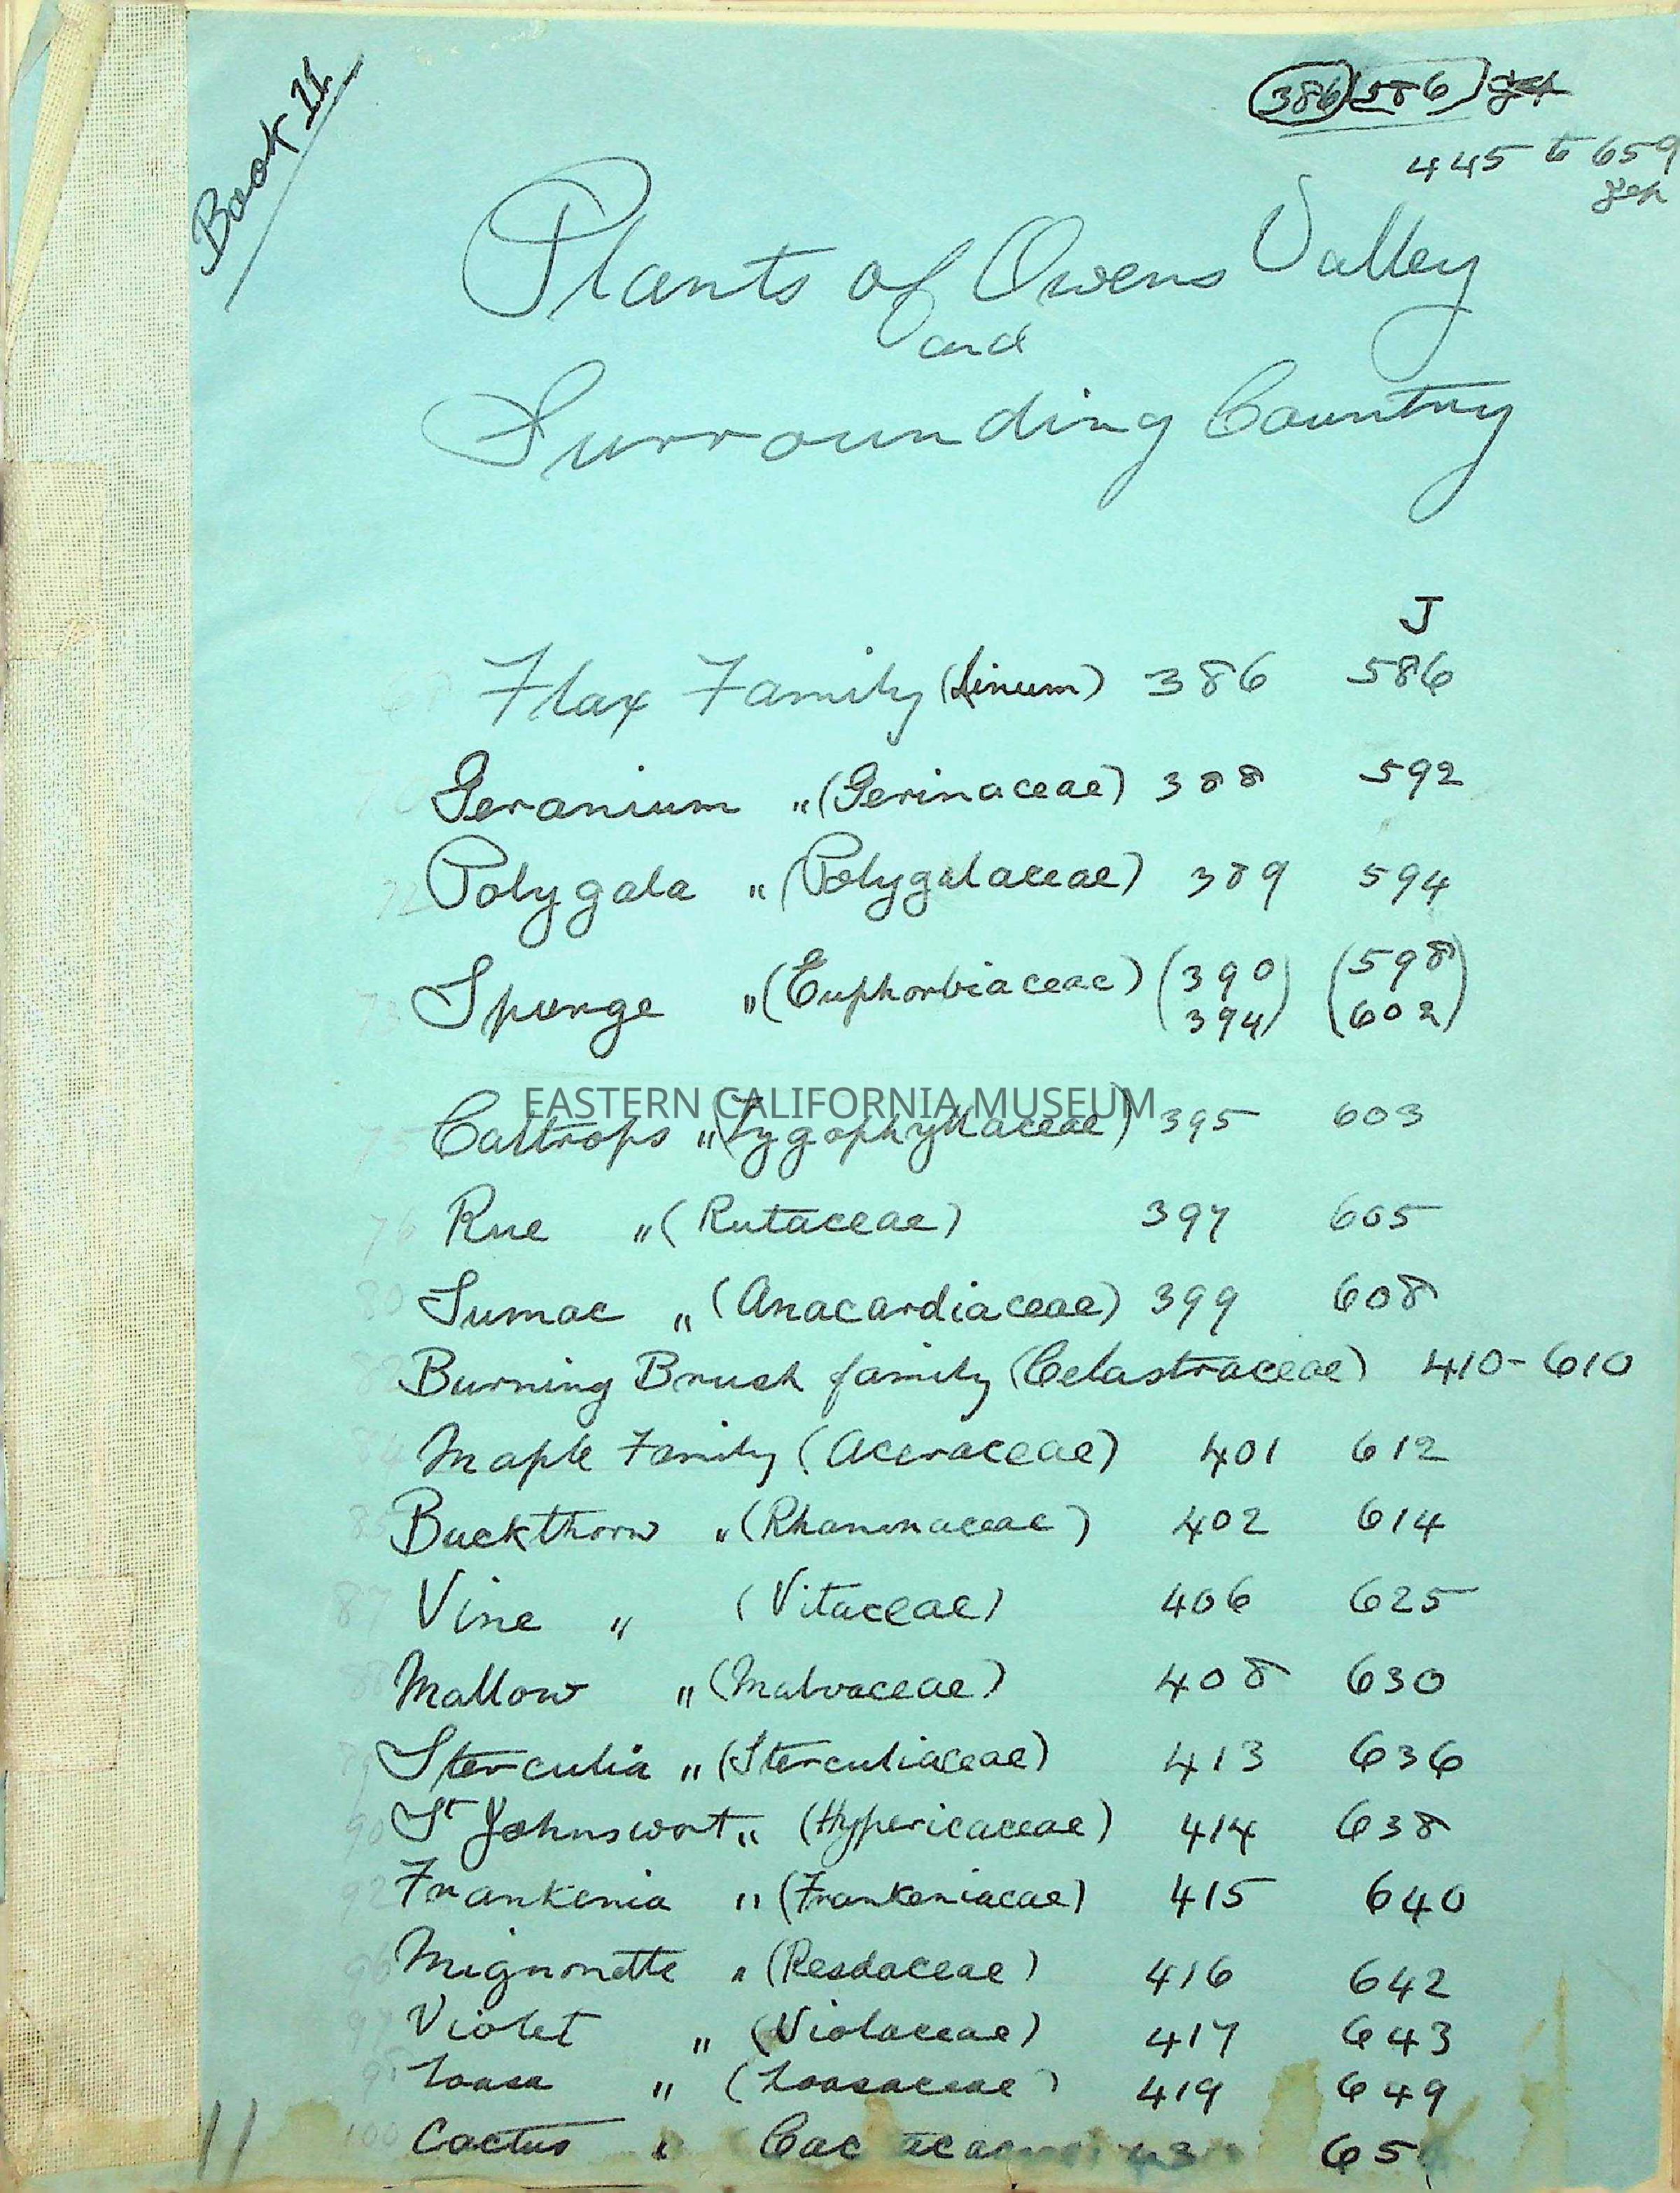 Book 11
386 586
445 to 659
Plants of Owens Valley
and
Surrounding Country
J
Flax Family (Linum) 386 586
70 Geranium " (Gerinaceae) 388 592
72 Polygala " (Polygalaceae) 389 594
73 Spurge " (Euphorbiaceae) (390 (598)
394) (602)
EASTERN CALIFORNIA MUSEUM
75 Caltrops " (Zygophyllaceae) 395 603
76 Rue " (Rutaceae) 397 605
80 Sumac " (Anacardiaceae) 399 608
Burning Brush family (Celastraceae) 410-610
84 Maple Family (Aceraceae) 401 612
85 Buckthorn " (Rhamnaceae) 402 614
87 Vine " (Vitaceae) 406 625
88 Mallow " (Malvaceae) 408 630
Sterculia " (Sterculiaceae) 413 636
90 St Johnswort " (Hypericaceae) 414 638
92 Frankenia " (Frankeniacae) 415 640
96 Mignonette " (Resdaceae) 416 642
97 Violet " (Violaceae) 417 643
Loasa " (Loasaceae) 419 649
100 Cactus " 65
11